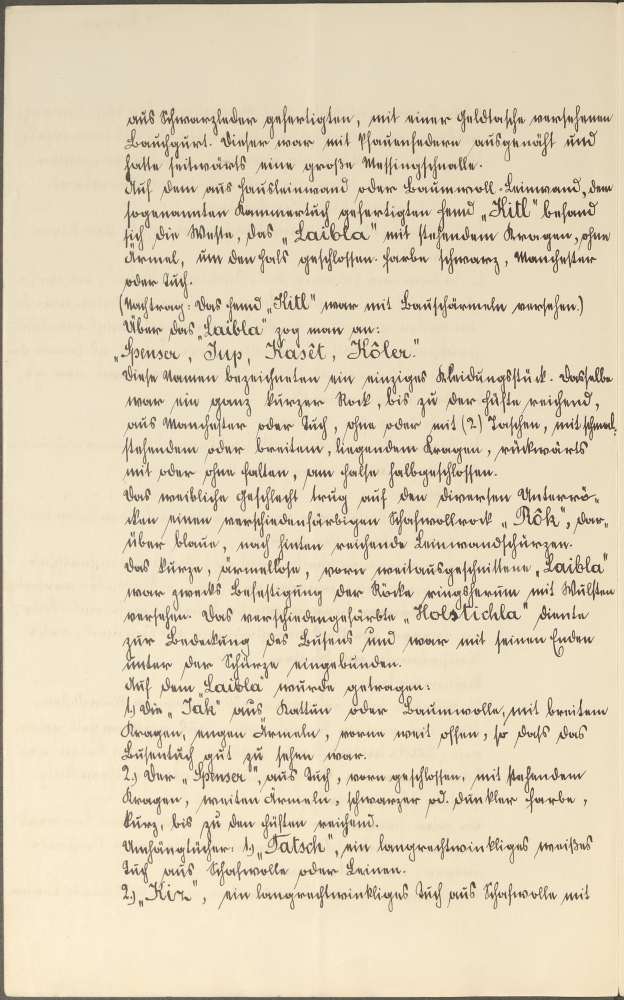 aus Schwarzleder gefertigten, mit einer Geldtasche versehenen
Bauchgurt. Dieser war mit Pfauenfedern ausgenäht und
hatte seitwärts eine große Messingschnalle.
Auf dem aus Hausleinwand oder Baumwoll-Leinwand, dem
sogenannten Kammertuch gefertigten Hemd „Kitl" befand
sich die Weste, das „Laibla" mit stehendem Kragen, ohne
Ärmel, um den Hals geschlossen. Farbe schwarz, Manchester
oder Tuch.
(Nachtrag: Das Hemd „Kitl" war mit Bauschärmeln versehen.)
Über das „Laibla" zog man an:
„Spenser, Jup, Kasêt, Kôler."
Diese Namen bezeichneten ein einziges Kleidungsstück. Dasselbe
war ein ganz kurzer Rock, bis zu der Hüfte reichend,
aus Manchester oder Tuch, ohne oder mit (2) Taschen, mit schmal,
stehendem oder breitem, liegendem Kragen, rückwärts
mit oder ohne Falten, am Halse halbgeschlossen.
Das weibliche Geschlecht trug auf den diversen Unterrö-
cken einen verschiedenfärbigen Schafwollrock „Rôk", dar-
über blaue, nach hinten reichende Leinwandschürzen.
Das kurze, ärmellose, vorn weitausgeschnittene „Laibla"
war zwecks Befestigung der Röcke ringsherum mit Wülsten
versehen. Das verschiedengefärbte „Holstichla" diente
zur Bedeckung des Busens und war mit seinen Enden
unter der Schürze eingebunden.
Auf dem „Laibla" wurde getragen:
1.) Die „Jäk" aus Kattun oder Baumwolle, mit breitem
Kragen, engen Ärmeln, vorne weit offen, so dass das
Busentuch gut zu sehen war.
2.) Der „Spenser", aus Tuch, vorn geschlossen, mit stehendem
Kragen, weiten Ärmeln, schwarzer od. dunkler Farbe,
kurz, bis zu den Hüften reichend.
Umhängtücher: 1.) „Tatsch", ein langrechtwinkliges weißes
Tuch aus Schafwolle oder Leinen.
2.) „Kir", ein langrechtwinkliges Tuch aus Schafwolle mit